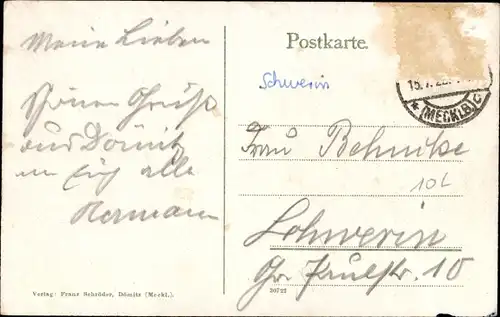 Meine Lieben
Postkarte.
Schwerin
15.7.2
* (MECKLB) c
Schönen Gruß
aus Dömitz
an Euch alle
Hermann
Frau Behncke
10L
Schwerin
Gr. Paulstr. 10
Verlag: Franz Schröder, Dömitz (Meckl.).
30725